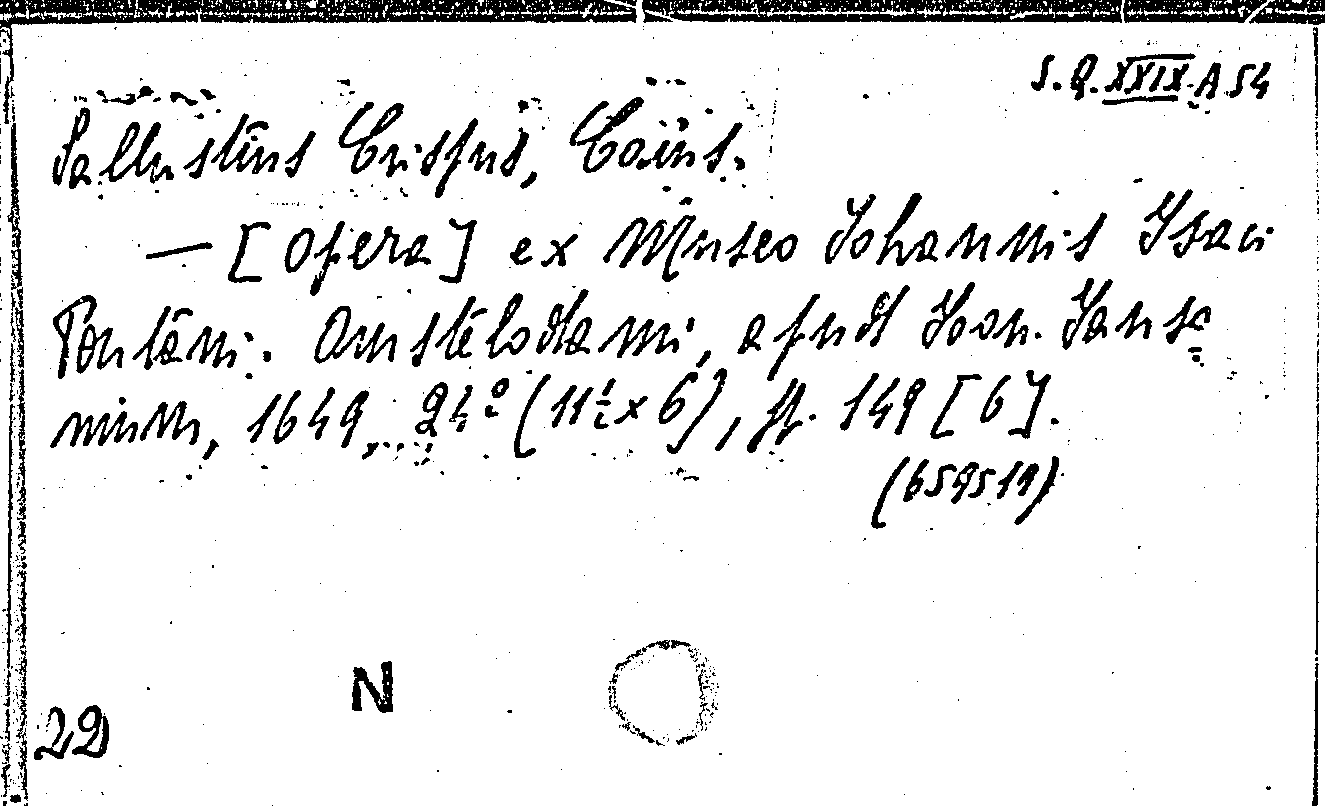 S.Q. XXIX. A 54
Sallustius Crispus, Caius.
— [Opera] ex Museo Johannis Isaci
Pontani. Amstelodami, apud Joan. Jansso=
nium, 1649, 24º (11½ x 6), ff. 149 [6].
(659519)
N
22